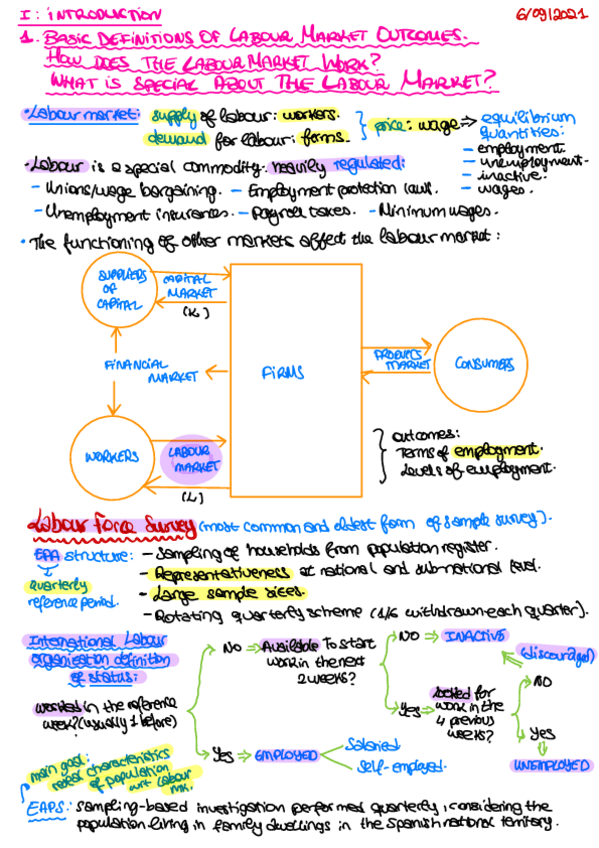 I: INTRODUCTION
6/09/2021
1. BASIC DEFINITIONS OF LABOUR MARKET OUTCOMES.
HOW DOES THE LABOUR MARKET WORK?
WHAT IS SPECIAL ABOUT THE LABOUR MARKET?
• Labour market: supply of labour: workers.
demand for labour: firms.
price: wage ⇒ equilibrium
quantities:
- employment.
- unemployment.
- inactive.
- wages.
• Labour is a special commodity. heavily regulated:
- Unions/wage bargaining. - Employment protection laws.
- Unemployment insurances. - Payroll taxes. - Minimum wages.
• The functioning of other markets affect the labour market:
SUPPLIERS
OF
CAPITAL
CAPITAL
MARKET
(K)
FINANCIAL
MARKET
FIRMS
PRODUCTS
MARKET
CONSUMERS
WORKERS
LABOUR
MARKET
(L)
outcomes:
Terms of employment.
Levels of employment.
Labour Force Survey (most common and oldest form of sample survey).
EPA structure:
quarterly
reference period.
- Sampling of households from population register.
- Representativeness at national and sub-national level.
- Large sample sizes.
- Rotating quarterly scheme (1/6 withdrawn each quarter).
International Labour
organisation definition
of status:
worked in the reference
week? (usually 1 before)
NO ⇒ Available to start
work in the next
2 weeks?
NO ⇒ INACTIVE
(discouraged)
Yes ⇒ looked for
work in the
4 previous
weeks?
NO
Yes
UNEMPLOYED
Yes ⇒ EMPLOYED
Salaried
self-employed.
main goal:
characteristics
of population
wrt labour
mk.
EAPS: sampling-based investigation performed quarterly, considering the
population living in family dwellings in the Spanish national territory.